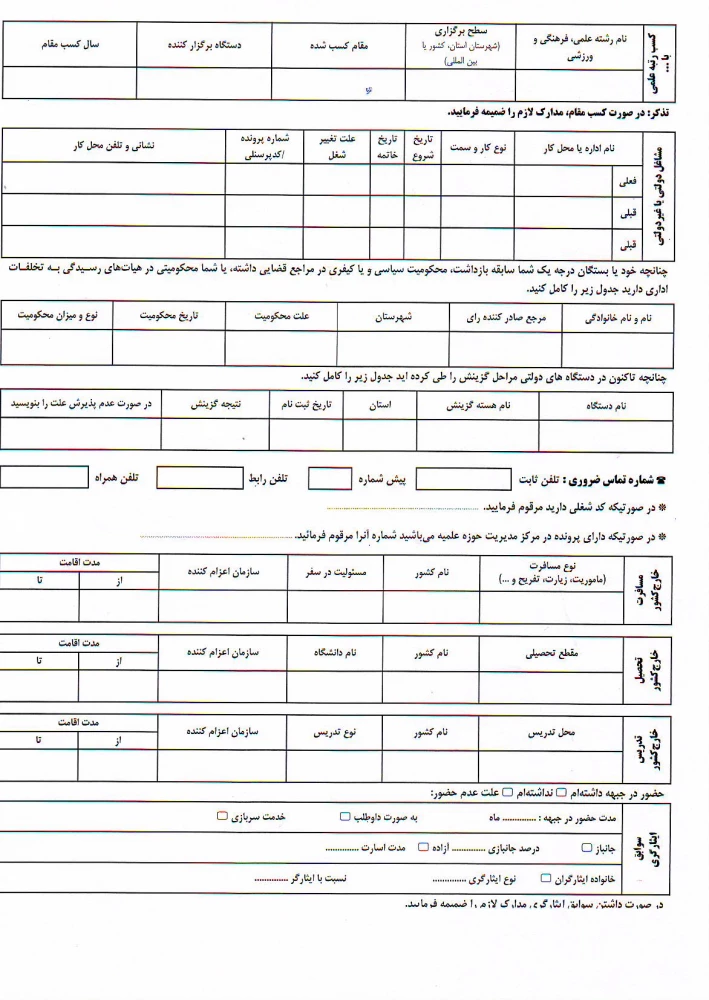 کسب رتبه علمی یا ...
نام رشته علمی، فرهنگی و ورزشی
سطح برگزاری (شهرستان استان، کشور یا بین المللی)
مقام کسب شده
دستگاه برگزار کننده
سال کسب مقام
تذکر: در صورت کسب مقام، مدارک لازم را ضمیمه فرمایید.
مشاغل دولتی یا غیردولتی
نام اداره یا محل کار
نوع کار و سمت
تاریخ شروع
تاریخ خاتمه
علت تغییر شغل
شماره پرونده /کدپرسنلی
نشانی و تلفن محل کار
فعلی
قبلی
قبلی
چنانچه خود یا بستگان درجه یک شما سابقه بازداشت، محکومیت سیاسی و یا کیفری در مراجع قضایی داشته، یا شما محکومیتی در هیات‌های رسـیدگی بـه تخلفـات
اداری دارید جدول زیر را کامل کنید.
نام و نام خانوادگی
مرجع صادر کننده رای
شهرستان
علت محکومیت
تاریخ محکومیت
نوع و میزان محکومیت
چنانچه تاکنون در دستگاه های دولتی مراحل گزینش را طی کرده اید جدول زیر را کامل کنید.
نام دستگاه
نام هسته گزینش
استان
تاریخ ثبت نام
نتیجه گزینش
در صورت عدم پذیرش علت را بنویسید
☎ شماره تماس ضروری : تلفن ثابت
پیش شماره
تلفن رابط
تلفن همراه
※ در صورتیکه کد شغلی دارید مرقوم فرمایید. ..........................................
※ در صورتیکه دارای پرونده در مرکز مدیریت حوزه علمیه می‌باشید شماره آنرا مرقوم فرمائید. ..........................................
مسافرت خارج کشور
نوع مسافرت (ماموریت، زیارت، تفریح و ...)
نام کشور
مسئولیت در سفر
سازمان اعزام کننده
مدت اقامت
از
تا
تحصیل خارج کشور
مقطع تحصیلی
نام کشور
نام دانشگاه
سازمان اعزام کننده
مدت اقامت
از
تا
تدریس خارج کشور
محل تدریس
نام کشور
نوع تدریس
سازمان اعزام کننده
مدت اقامت
از
تا
حضور در جبهه داشته‌ام □ نداشته‌ام □ علت عدم حضور:
سوابق ایثارگری
مدت حضور در جبهه : .............. ماه
به صورت داوطلب □
خدمت سربازی □
جانباز □
درصد جانبازی .............. آزاده □
مدت اسارت ..............
خانواده ایثارگران □
نوع ایثارگری ..............
نسبت با ایثارگر ..............
در صورت داشتن سوابق ایثارگری مدارک لازم را ضمیمه فرمایید.